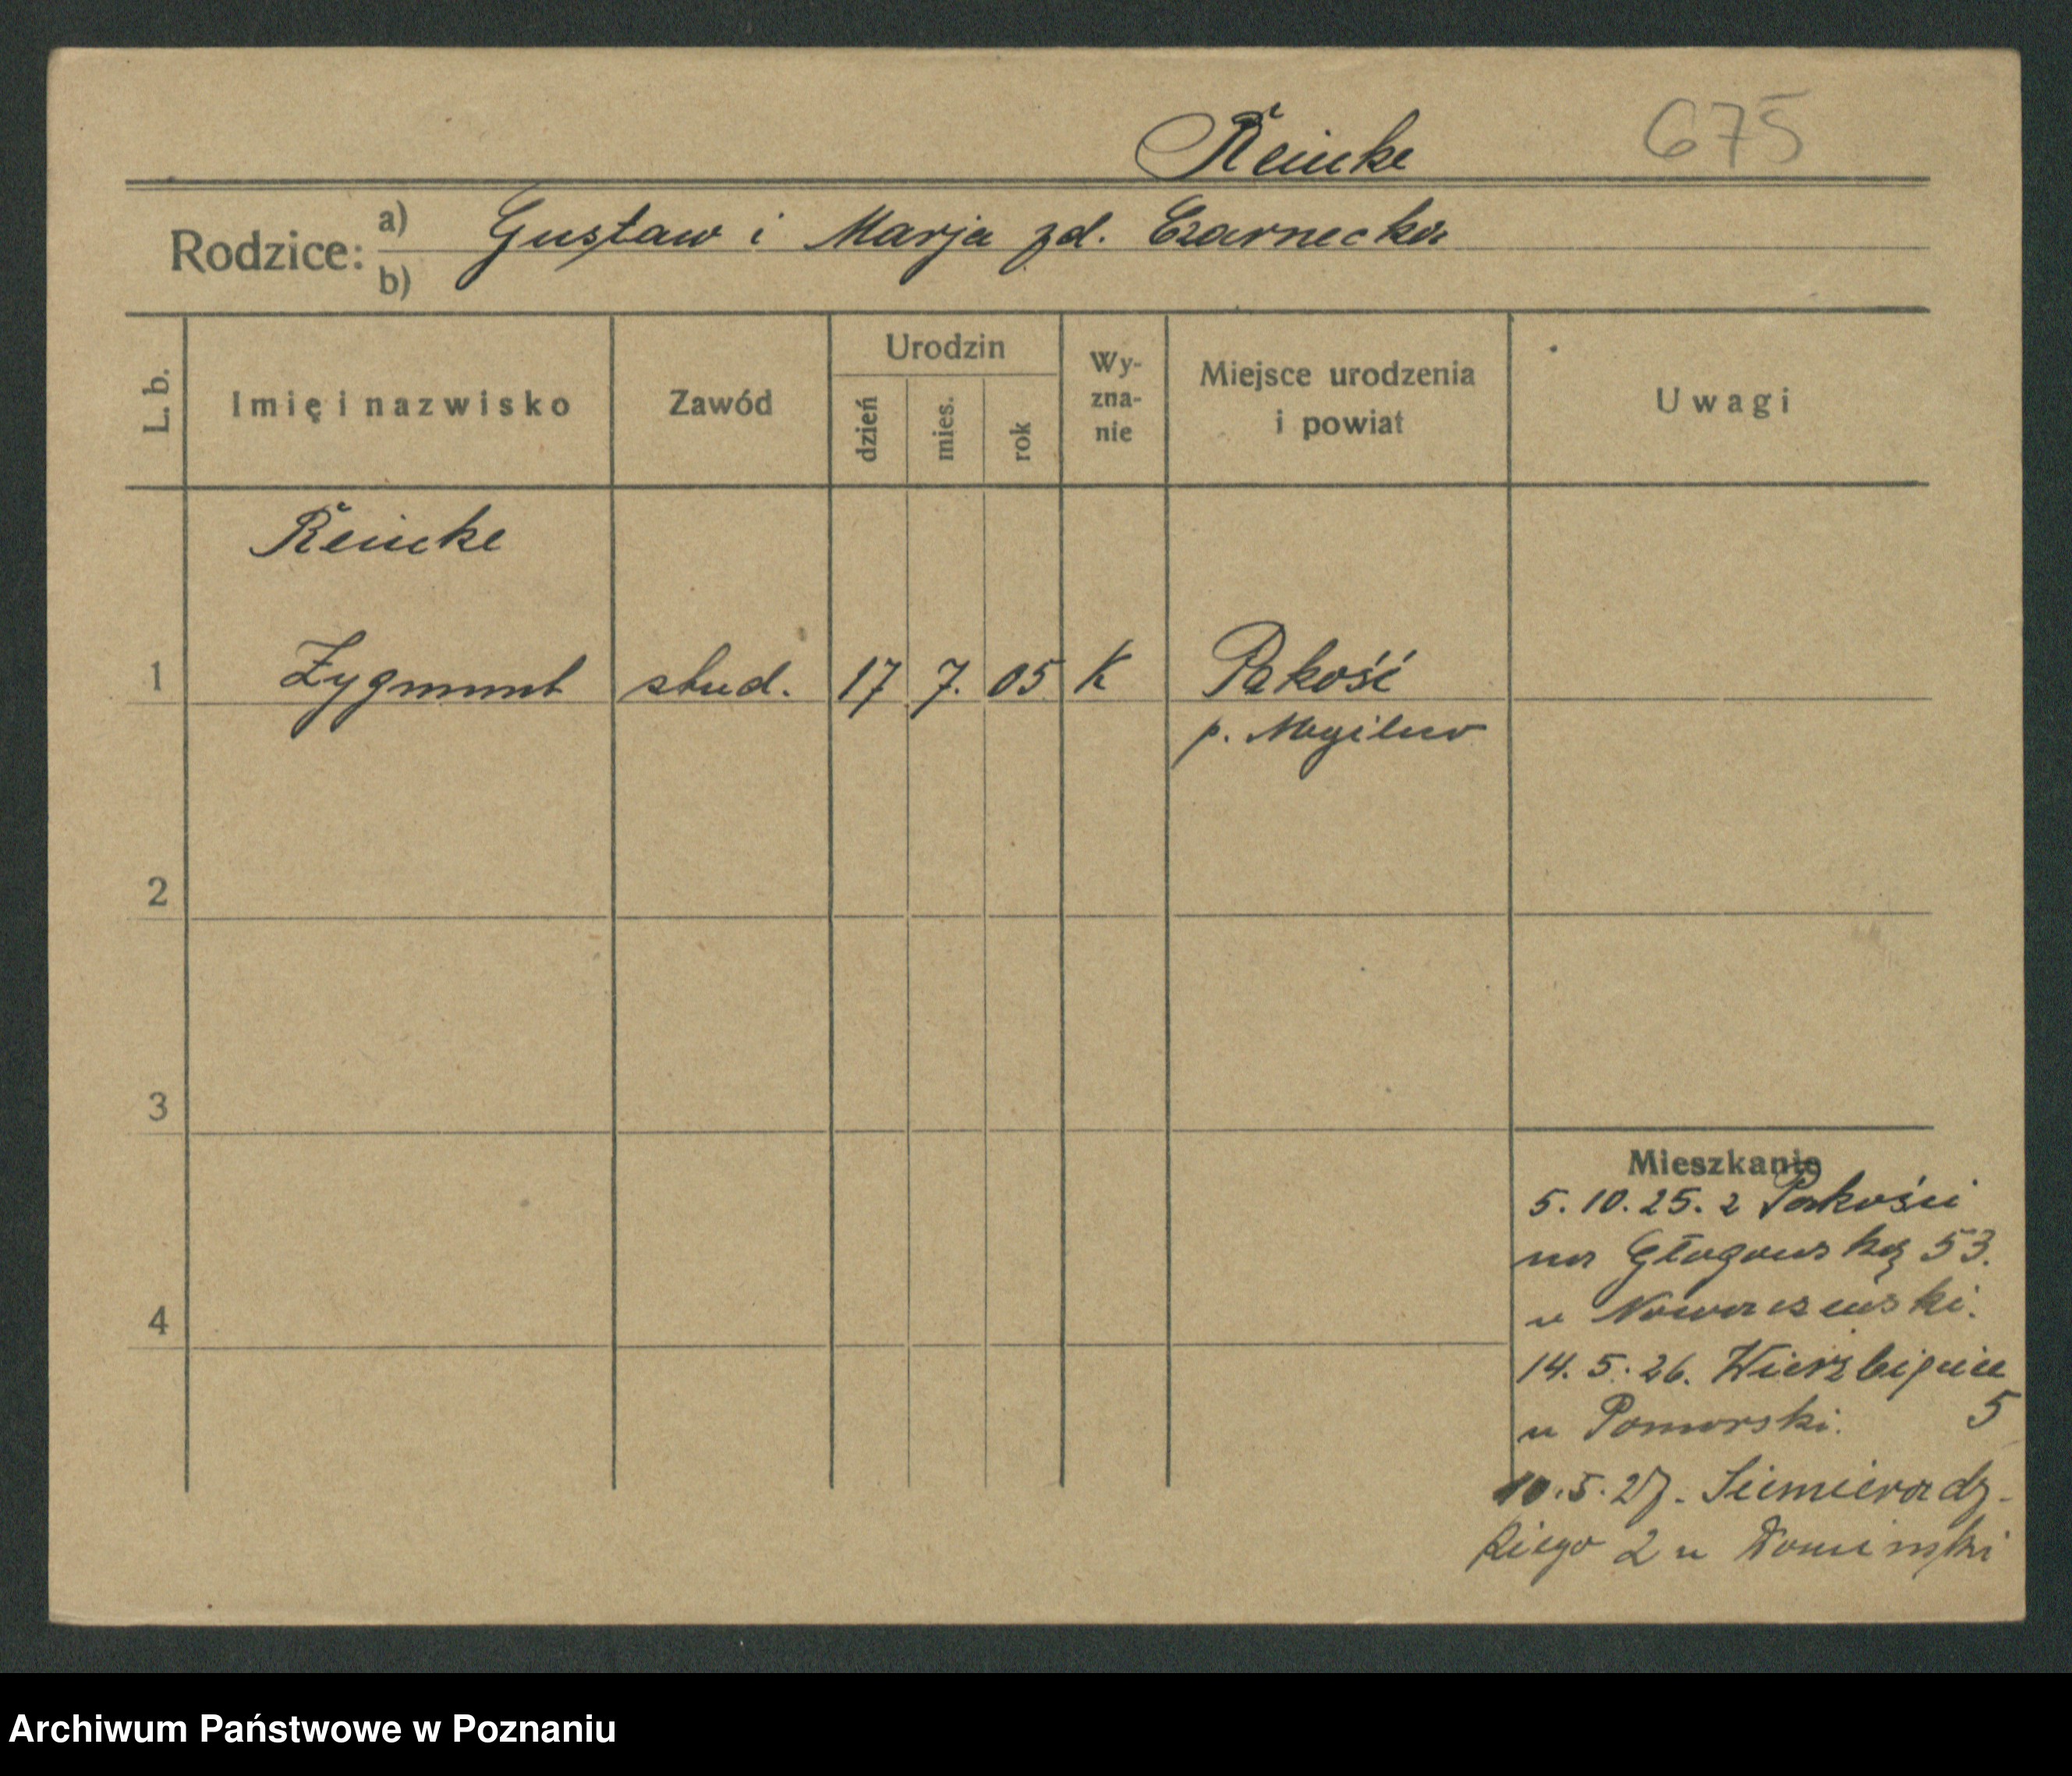 Reincke
675
Rodzice: a) Gustaw i Marja zd. Czarnecka
b)
L. b.
Imię i nazwisko
Zawód
Urodzin
dzień
mies.
rok
Wy-
zna-
nie
Miejsce urodzenia
i powiat
Uwagi
Reincke
1 Zygmunt stud. 17 7. 05 K Pakość
p. Mogilno
2
3
4
Mieszkanie
5. 10. 25. z Pakości
na Głogowską 53.
u
14. 5. 26. Wierzbięcice
5
u Pomorski.
10. 5. 27. Siemieradz-
kiego 2 u
Archiwum Państwowe w Poznaniu